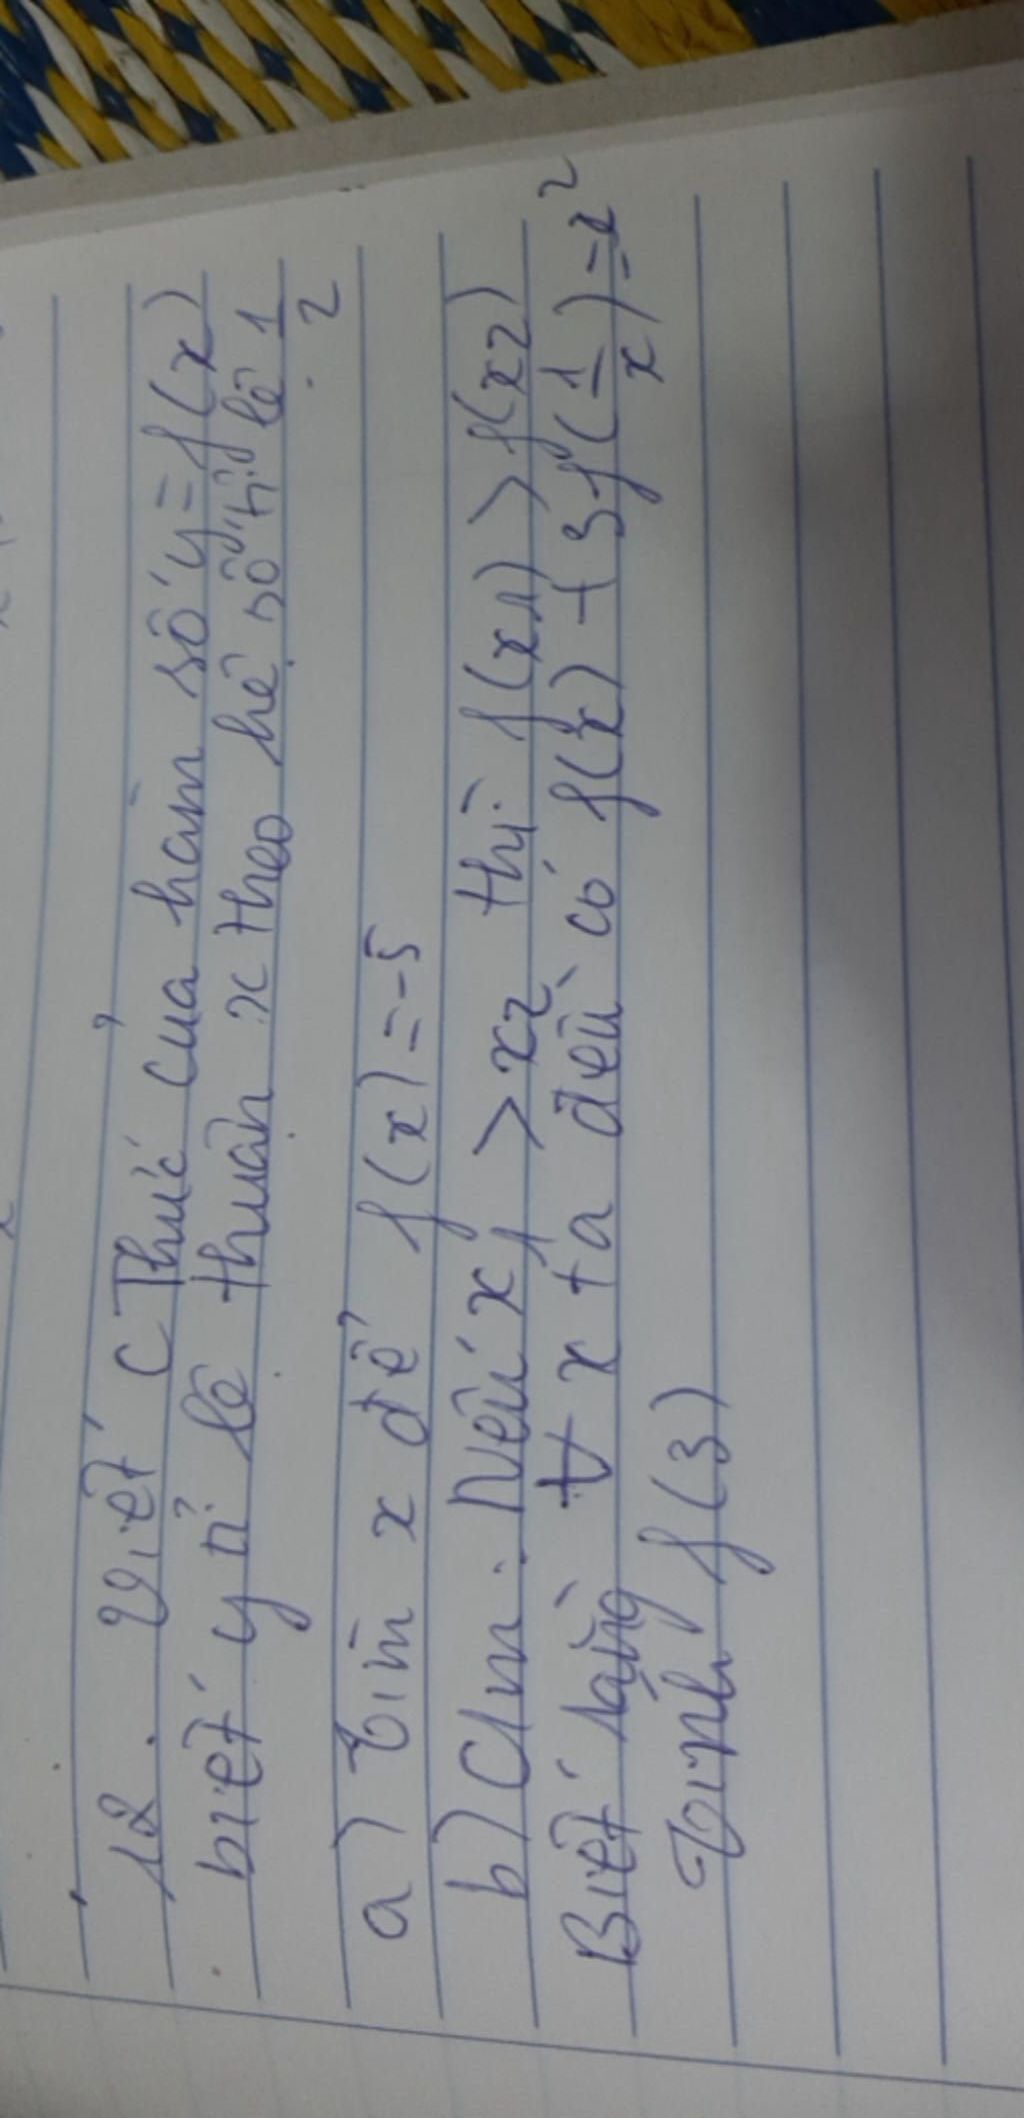 12. Viết CThức của hàm số y = f(x)
biết y tỉ lệ thuận x theo hệ số tỉ lệ 1/2
a) Tìm x để f(x) = -5
b) Cm. Nếu x1 > x2 thì f(x1) > f(x2)
Biết rằng ∀ x ta đều có f(x) + 3f(1/x) = x²
Tính f(3)